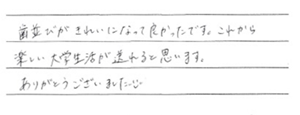 歯並びがきれいになって良かったです。これから
楽しい大学生活が送れると思います。
ありがとうございました